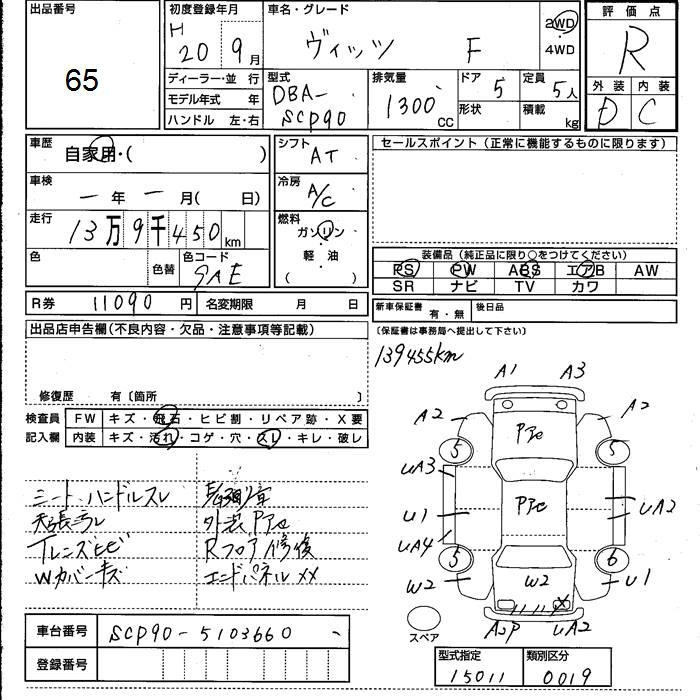 出品番号
65
初度登録年月
H
20 9月
車名・グレード
ヴィッツ F
2WD
・
4WD
評価点
R
外装 内装
D C
ディーラー・並 行
モデル年式 年
ハンドル 左・右
型式
DBA-
SCP90
排気量
1300 cc
ドア
5
形状
定員
5人
積載
kg
車歴
自家用・( )
車検
一年一月( 日)
走行
13万9千450km
色
色替
色コード
9AE
シフト
AT
冷房
A/C
燃料
ガソリン
・
軽・油
( )
R券 11090円 名変期限 月 日
セールスポイント(正常に機能するものに限ります)
装備品(純正品に限り○をつけてください)
PS PW ABS エアB AW
SR ナビ TV カワ
新車保証書 有・無 後日品
(保証書は事務局へ提出して下さい)
出品店申告欄(不良内容・欠品・注意事項等記載)
修復歴 有〔箇所 〕
検査員 FW キズ・飛石・ヒビ割・リペア跡・X要
記入欄 内装 キズ・汚れ・コゲ・穴・スレ・キレ・破レ
シート・ハンドルスレ
天張ヨゴレ
Tレンズヒビ
Wカバーキズ
外装Pアc
Rフロア修復
エンドパネルXX
139455km
A1 A3
A2 A2
Pアc
5 5
uA3
Pアc
u1 uA2
uA4
5 6
W2 W2 u1
スペア
A2P uA2
車台番号 SCP90-5103660
登録番号
型式指定 類別区分
15011 0019